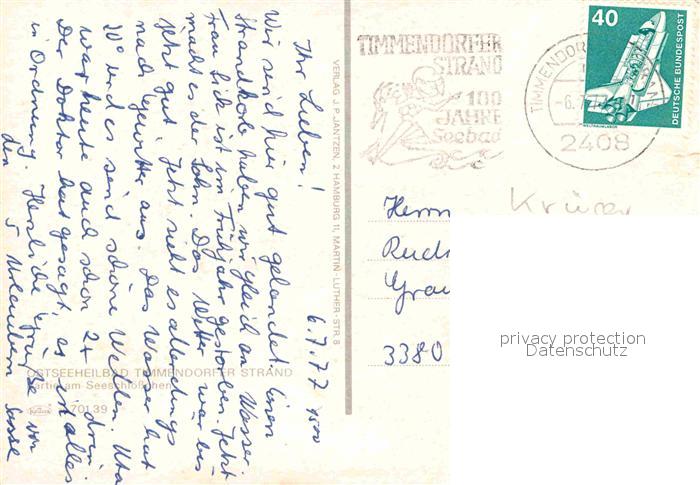 Ihr Lieben!
6.7.77 1500
Wir sind hier gut gelandet. Einen
Strandkorb haben wir gleich am Wasser.
Frau Lick ist im Frühjahr gestorben. Jetzt
macht es der Sohn. Das Wetter war bis
jetzt gut. Jetzt sieht es allerdings
nach Gewitter aus. Das Wasser hat
20° und es sind schöne Wellen. Uta
war heut auch schon 2x drin.
Der Doktor hat gesagt, es ist alles
in Ordnung. Herzliche Grüße von
den 5 Urlaubern
OSTSEEHEILBAD TIMMENDORFER STRAND
Partie am Seeschlößchen
Krüger
70139
VERLAG J. P. JANTZEN, 2 HAMBURG 11, MARTIN-LUTHER-STR. 8
TIMMENDORFER
STRAND
100
JAHRE
Seebad
TIMMENDORF
-6.7.77
2408
40
DEUTSCHE BUNDESPOST
WELTRAUMLABOR
Herrn Krüger
Rud
Grau
3380
privacy protection
Datenschutz